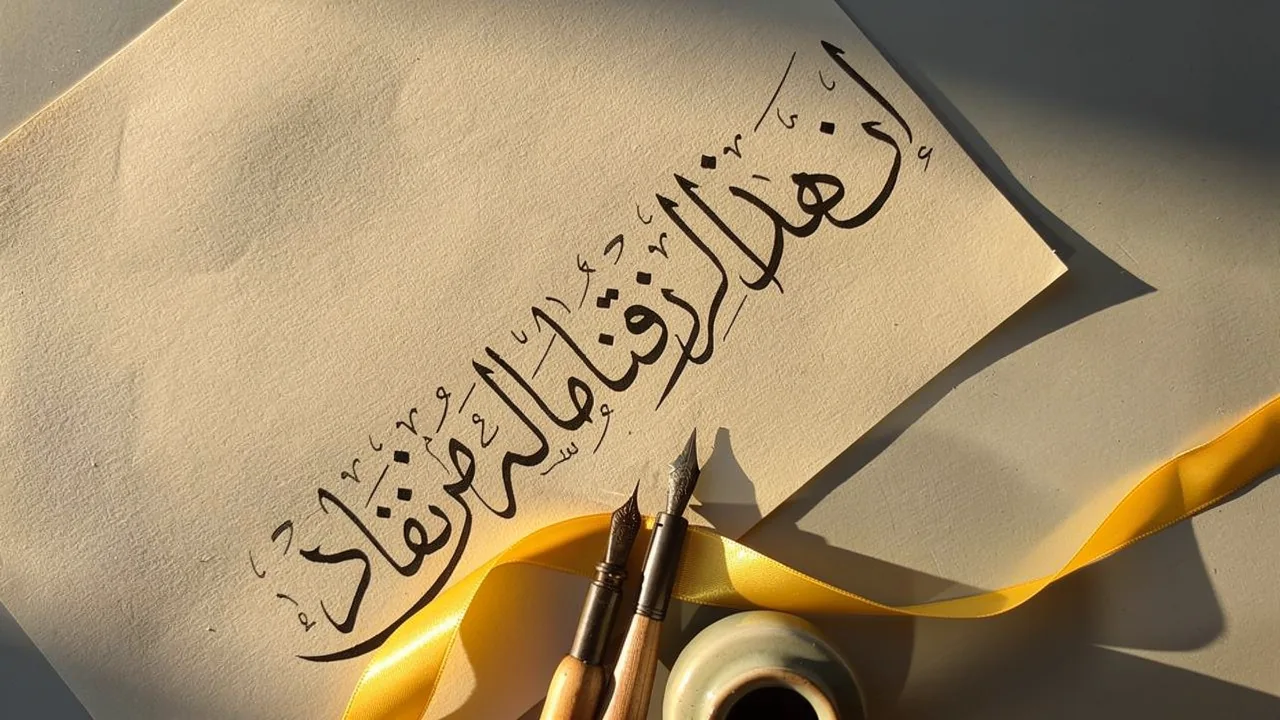 إن هذا لرزقنا ماله من نفاد